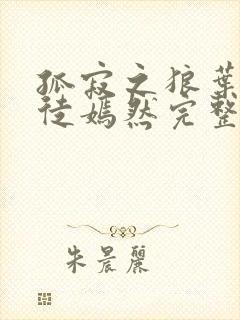 孤寂之狼葉
徒嫣然完整
朱晨麗